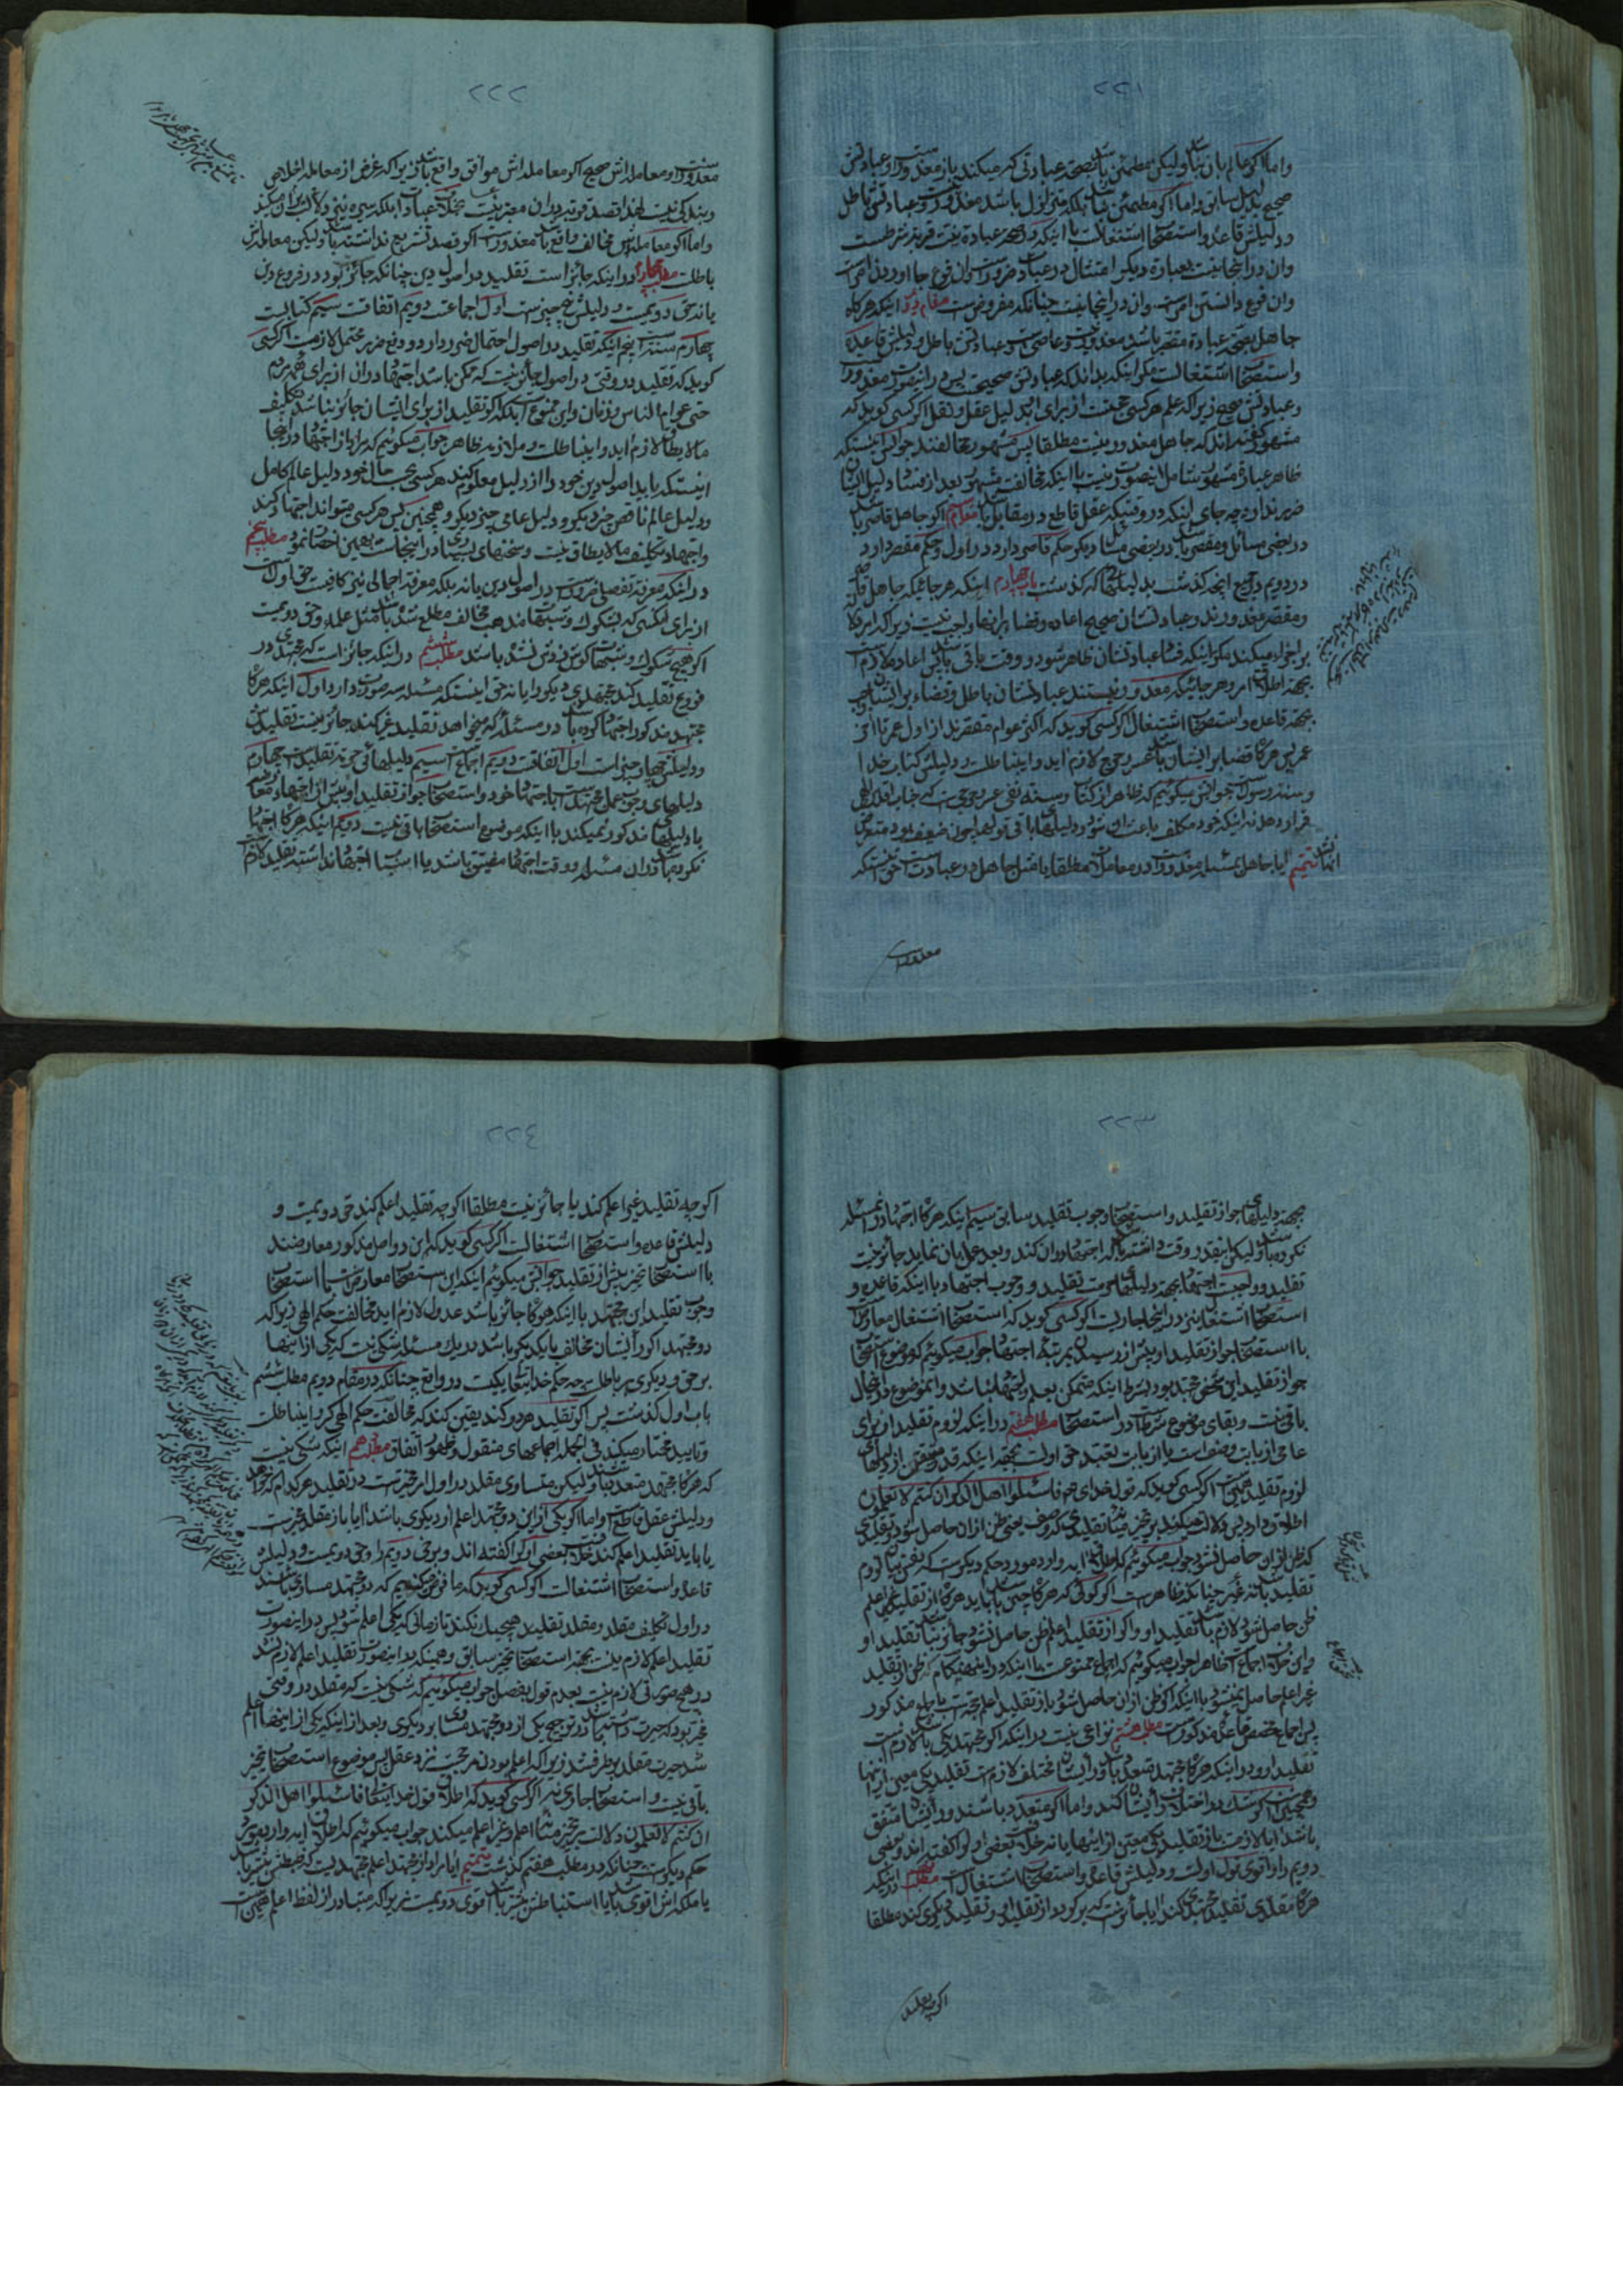 ٢٢١
واما اگر عالم بان نباشد وليکن مطمئن باشد بصحة عبادتی که میکند باز معذور است و عبادتش
صحیح بدلیل سابق واما اگر مطمئن نباشد بلکه متزلزل باشد معذور نیست و عبادتش باطل
ودلیلش قاعده و استصحاب اشتغالست با اینکه در صحة عبادة نیت قربة شرطست
وان در اینجا نیست بعبارة دیگر امتثال در عبادت ضرور است وان فرع جا اوردن امر است
وان فرع دانستن امر است وان در اینجا نیست چنانکه مفروض است مقام دویم اینکه هرگاه
جاهل بصحة عبادة مقصر باشد معذور نیست و عاصی است و عبادتش باطل ودلیلش قاعده
واستصحاب اشتغالست مگر اینکه بداند که عبادتش صحیحست پس در اینصورت معذور است
وعبادتش صحیح زیرا که علم هر کسی حجت است از برای او بدلیل عقل و نقل اگر کسی گوید که
مشهور گفته اند که جاهل معذور نیست مطلقا پس مشهور مخالفند جوابش اینستکه
ظاهر عبارة مشهور شامل اینصورت نیست با اینکه مخالفت مشهور بعد از فساد دلیل ایشان
ضرر ندارد چه جای اینکه در وقتیکه عقل قاطع در مقابل باشد مقام سیم اگر جاهل قاصر باشد
در بعضی مسائل و مقصر باشد در بعضی مسائل دیگر حکم قاصر دارد در اول و حکم مقصر دارد
در دویم در جمیع انچه گذشت بدلیلهائی که گذشت باب چهارم اینکه هر جائیکه جاهل قاصر
ومقصر معذورند و عبادتشان صحیح اعاده وقضا بر انها واجب نیست زیرا که امر دلالت
بر اجزاء میکند مگر اینکه فساد عبادتشان ظاهر شود و وقت باقی باشد پس اعاده لازم است
بجهة اطلاق امر و هر جائیکه معذور نیستند عبادتشان باطل وقضاء بر ایشان واجب
بجهة قاعده و استصحاب اشتغال اگر کسی گوید که اکثر عوام مقصرند از اول عمر تا اخر
عمر پس هرگاه قضا بر ایشان باشد عسر و حرج لازم اید و این باطلست ودلیلش کتاب خدا
وسنة رسول است جوابش میگوئیم که ظاهر از کتاب وسنة نفی عسر و حرجی است که جناب اقدس الهی
قرار دهد نه اینکه خود مکلف باعث ان شود ودلیلهای باقی قولها چون ضعیف بود متعرض
انها نشد تتمیم ایا جاهل بمسئله معذور است در معاملات مطلقا یا مثل جاهل در عبادت است حق اینستکه
معذور است
٢٢٢
معذور است ومعامله اش صحیح اگر معامله اش موافق واقع باشد زیرا که غرض از معامله اخلاص
وبندگی نیست لهذا قصد قربة در ان معتبر نیست بخلاف عبادت بلکه سیره نیز دلالت بر ان میکند
واما اگر معامله اش مخالف واقع باشد معذور است اگر قصد تشریع نداشته باشد ولیکن معامله اش
باطلست مطلب چهارم در اینکه جائز است تقلید در اصول دین چنانکه جائز بود در فروع دین
یا نه حق دویمست ودلیلش پنج چیز است اول اجماعست دویم اتفاقست سیم کتابست
چهارم سنتست پنجم اینکه تقلید در اصول احتمال ضرر دارد و دفع ضرر محتمل لازمست اگر کسی
گوید که تقلید در وقتی در اصول جائز نیست که ممکن باشد اجتهاد در ان از برای همه مردم
حتی عوام الناس و زنان و این ممنوعست بلکه اگر تقلید از برای ایشان جائز نباشد تکلیف
مالایطاق لازم اید و این باطلست جواب میگوئیم که مراد از اجتهاد در اینجا
اینستکه باید اصول دین خود را از دلیل معلوم کند هر کسی بحسب حال خود دلیل عالم کامل
ودلیل عالم ناقص چیز دیگر ودلیل عامی چیز دیگر و همچنین پس هر کسی میتواند اجتهاد کند
واجتهاد تکلیف مالایطاق نیست و سخنهای بسیاری در اینجاست بهمین اختصار نمود مطلب پنجم
در اینکه معرفة تفصیلی ضرور است در اصول دین یا نه بلکه معرفة اجمالی نیز کافیست حق اول است
از برای کسی که بشکوک وشبهات مذهب مخالف مطلع شده باشد مثل علماء وحق دویمست
اگر هیچ شکوک وشبهات گوش زدش نشده باشد مطلب ششم در اینکه جائز است که مجتهدی در
فروع تقلید کند مجتهد دیگر را یا نه حق اینستکه مسئله سه صورت دارد اول اینکه هرگاه
مجتهد مذکور اجتهاد کرده باشد در مسئله که میخواهد تقلید غیر کند جائز نیست تقلیدش
ودلیلش چهار چیز است اول اتفاقست دویم اجماعست سیم دلیلهائی حرمة تقلید است چهارم
دلیلهای وجوب عمل مجتهد است باجتهاد خود واستصحاب جواز تقلید او پیش از اجتهاد معارضه
با دلیلهای مذکور نمیکند با اینکه موضوع استصحاب باقی نیست دویم اینکه هرگاه اجتهاد
نکرده باشد در ان مسئله و وقت اجتهاد مضیق باشد یا اسباب اجتهاد نداشته تقلید لازم است
٢٢٣
بجهة دلیلهای جواز تقلید واستصحاب وجوب تقلید سابق سیم اینکه هرگاه اجتهاد در ان مسئله
نکرده باشد ولیکن انقدر وقت داشته باشد که اجتهاد در ان کند و بعد عمل بان نماید جائز نیست
تقلید و واجبست اجتهاد بجهة دلیلهای حرمت تقلید و وجوب اجتهاد با اینکه قاعده و
استصحاب اشتغال نیز در اینجا جاریست اگر کسی گوید که استصحاب اشتغال معارض است
با استصحاب جواز تقلید او پیش از رسیدن بمرتبه اجتهاد جواب میگوئیم که موضوع استصحاب
جواز تقلید این شخص مجتهد بود بشرط اینکه متمکن بعلم و اجتهاد نباشد و این موضوع در اینحال
باقی نیست و بقای موضوع شرط است در استصحاب مطلب هفتم در اینکه لزوم تقلید از برای
عامی از باب وصف است یا از باب تعبد حق اولست بجهة اینکه قدر متیقن از دلیلهای
لزوم تقلید همین است اگر کسی گوید که قول خدای هم فاسئلوا اهل الذکر ان کنتم لا تعلمون
اطلاق دارد پس دلالت میکند بر تخییر میان تقلیدی که وصف یعنی ظن از ان حاصل شود و تقلیدی
که ظن از ان حاصل نشود جواب میگوئیم که اطلاق ایه وارد مورد حکم دیگر است که نفس بیان لزوم
تقلید باشد نه غیر چنانکه ظاهر است اگر گوئی که هرگاه چنین باشد باید هرگاه از تقلید غیر اعلم
ظن حاصل شود لازم باشد تقلید او و اگر از تقلید اعلم ظن حاصل نشود جائز نباشد تقلید او
واین خلاف اجماع است ظاهرا جواب میگوئیم که اجماع ممنوعست با اینکه در این هنگام ظن از تقلید
غیر اعلم حاصل نمیشود با اینکه اگر ظن از ان حاصل شود باز تقلید اعلم حجتست باجماع مذکور
پس اجماع مخصص قاعده مذکور است مطلب هشتم نزاعی نیست در اینکه اگر مجتهد یکی باشد لازم است
تقلید او و در اینکه هرگاه مجتهد متعدد باشد و رأی ایشان مختلف لازم است تقلید یکی معین از انها
وهمچنین است اگر شک در اختلاف رأی ایشان کند واما اگر متعدد باشند و رأی ایشان متفق
باشد ایا لازمست باز تقلید یکی معین از اینها یا نه خلافست بعضی اول را گفته اند و بعضی
دویم را و اقوی قول اولست ودلیلش قاعده واستصحاب اشتغال است مطلب نهم در اینکه
هرگاه مقلدی تقلید مجتهدی کند ایا جائز است که برگردد از تقلید او و تقلید دیگری کند مطلقا
اگر چه تقلید
٢٢٤
اگر چه تقلید غیر اعلم کند یا جائز نیست مطلقا اگر چه تقلید اعلم کند حق دویمست و
دلیلش قاعده واستصحاب اشتغالست اگر کسی گوید که این دو اصل مذکور معارضند
با استصحاب تخییر پیش از تقلید جوابش میگوئیم اینکه این استصحاب معارض است با استصحاب
وجوب تقلید این مجتهد با اینکه هرگاه جائز باشد عدول لازم اید مخالفت حکم الهی زیرا که
دو مجتهد اگر رأی ایشان مخالف یکدیگر باشد در یک مسئله شکی نیست که یکی از اینها
بر حق و دیگری بر باطل چه حکم خدایتعالی یکیست در واقع چنانکه در مقام دویم مطلب ششم
باب اول گذشت پس اگر تقلید هر دو کند یقین کند که مخالفت حکم الهی کرده و این باطلست
وتایید مختار میکند فی الجمله اجماعهای منقول وظهور اتفاق مطلب دهم اینکه شکی نیست
که هرگاه مجتهد متعدد باشند ولیکن متساوی مقلد در اول امر مخیر است در تقلید هر کدام که خواهد
ودلیلش عقل قاطع است واما اگر یکی از این دو مجتهد اعلم از دیگری باشد ایا باز مقلد مخیر است
یا باید تقلید اعلم کند خلافست بعضی اول را گفته اند و برخی دویم را وحق دویمست ودلیلش
قاعده واستصحاب اشتغالست اگر کسی گوید که ما فرض میکنیم که دو مجتهد مساوی باشند
در اول تکلیف مقلد و مقلد تقلید هیچیک نکند تا زمانی که یکی اعلم شود پس در اینصورت
تقلید اعلم لازم نیست بجهة استصحاب تخییر سابق و همینکه در اینصورت تقلید اعلم لازم نشد
در هیچ صورتی لازم نیست بعدم قول بفصل جواب میگوئیم که شکی نیست که مقلد در وقتی
مخیر بود که حیرت داشته باشد در ترجیح یکی از دو مجتهد مساوی بر دیگری و بعد از اینکه یکی از اینها اعلم
شد حیرت مقلد بر طرف شد زیرا که اعلم بودن مرجحست نزد عقل پس موضوع استصحاب تخییر
باقی نیست و استصحاب جاری نه اگر کسی گوید که اطلاق قول خدایتعالی فاسئلوا اهل الذکر
ان کنتم لا تعلمون دلالت بر تخییر میان اعلم وغیر اعلم میکند جواب میگوئیم که اطلاق ایه وارد مورد
حکم دیگر است چنانکه در مطلب هفتم گذشت تتمیم ایا مراد از مجتهد اعلم مجتهدیست که ضبطش بیشتر باشد
یا ملکه اش اقوی باشد یا استنباطش بیشتر باشد اقوی دویمست زیرا که متبادر از لفظ اعلم همین است